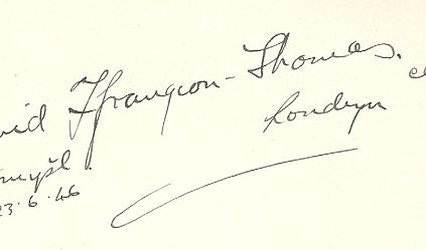 vid Ffrangcon-Thomas.
Londyn
emyśl.
23.6.46